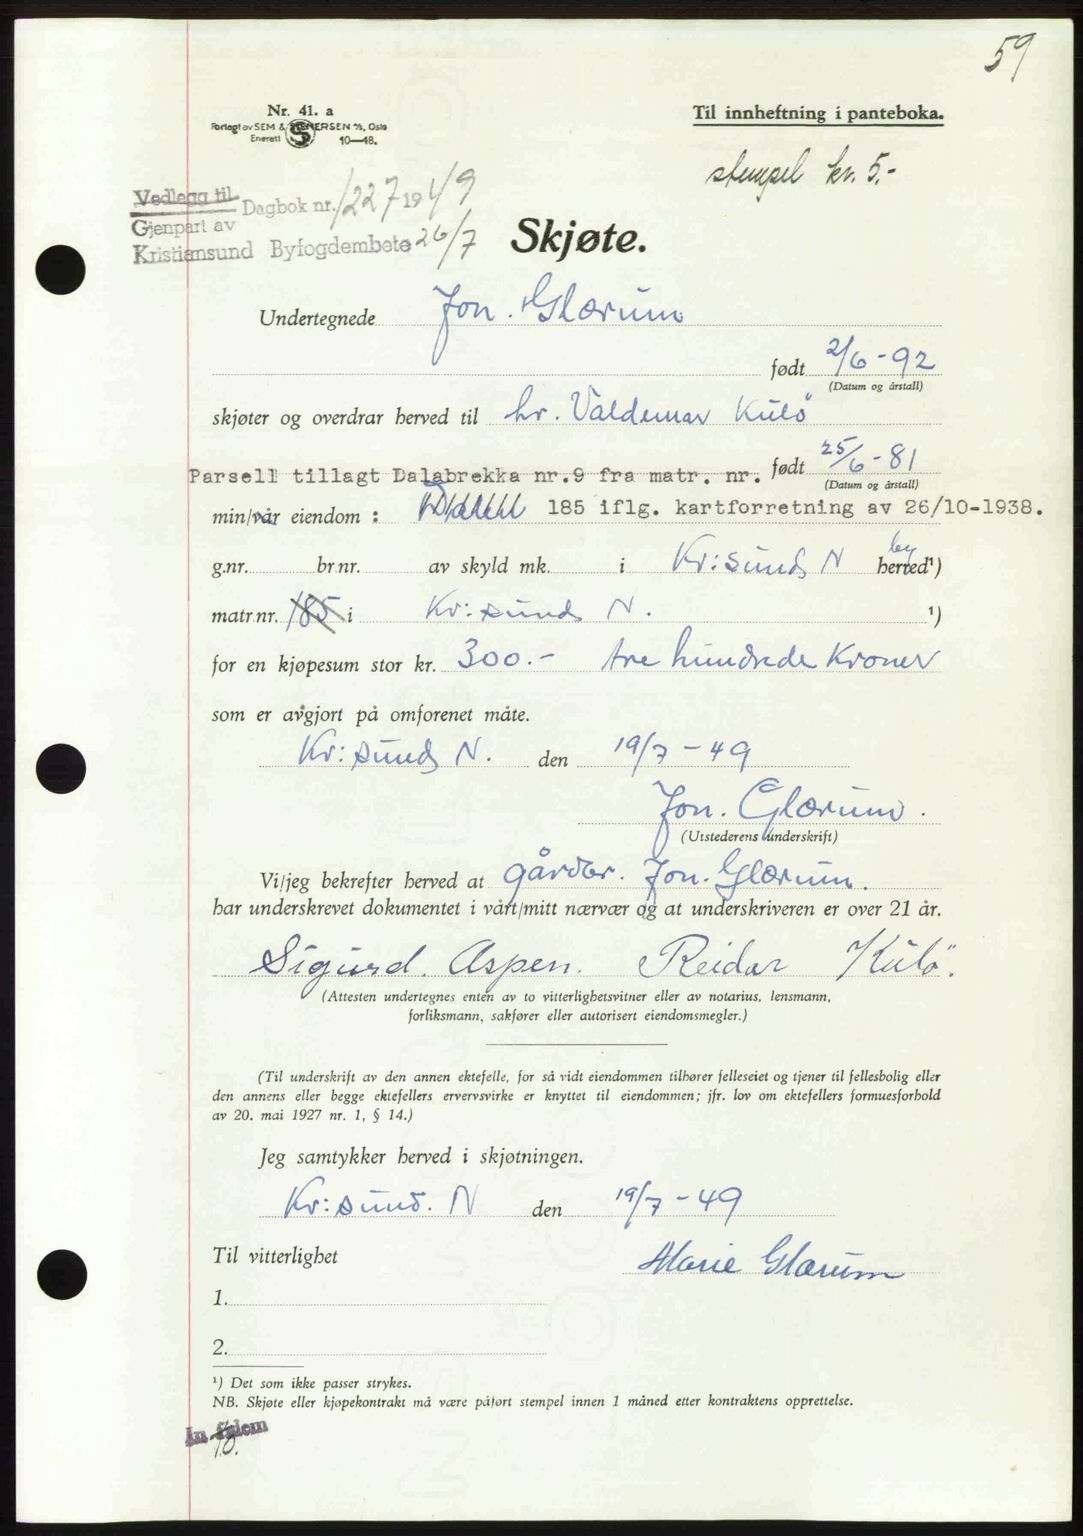 59
Nr. 41. a
Forlagt av SEM & STENERSEN A/S, Oslo
Enerett 10—48.
Til innheftning i panteboka.
stempel kr. 5.-
Vedlegg til
Gjenpart av
Dagbok nr. 1227 1949
Kristiansund Byfogdembete 26/7
Skjøte.
Undertegnede Jon. Glærum
født 2/6-92
(Datum og årstall)
skjøter og overdrar herved til hr. Valdemar Kulö
Parsell tillagt Dalabrekka nr.9 fra matr. nr. født 25/6-81
(Datum og årstall)
min/vår eiendom : 185 iflg. kartforretning av 26/10-1938.
g.nr. br.nr. av skyld mk. i Kr:sunds N by herred¹)
matr.nr. 185 i Kr:sunds N. ¹)
for en kjøpesum stor kr. 300.- tre hundrede Kroner
som er avgjort på omforenet måte.
Kr:sunds N. den 19/7-49
Jon. Glærum.
(Utstederens underskrift)
Vi/jeg bekrefter herved at gårdbr. Jon. Glærum.
har underskrevet dokumentet i vårt/mitt nærvær og at underskriveren er over 21 år.
Sigurd. Aspen. Reidar Kulö.
(Attesten undertegnes enten av to vitterlighetsvitner eller av notarius, lensmann,
forliksmann, sakfører eller autorisert eiendomsmegler.)
(Til underskrift av den annen ektefelle, for så vidt eiendommen tilhører felleseiet og tjener til fellesbolig eller
den annens eller begge ektefellers ervervsvirke er knyttet til eiendommen; jfr. lov om ektefellers formuesforhold
av 20. mai 1927 nr. 1, § 14.)
Jeg samtykker herved i skjøtningen.
Kr:sund. N den 19/7-49
Til vitterlighet Marie Glærum
1.
2.
¹) Det som ikke passer strykes.
NB. Skjøte eller kjøpekontrakt må være påført stempel innen 1 måned etter kontraktens opprettelse.